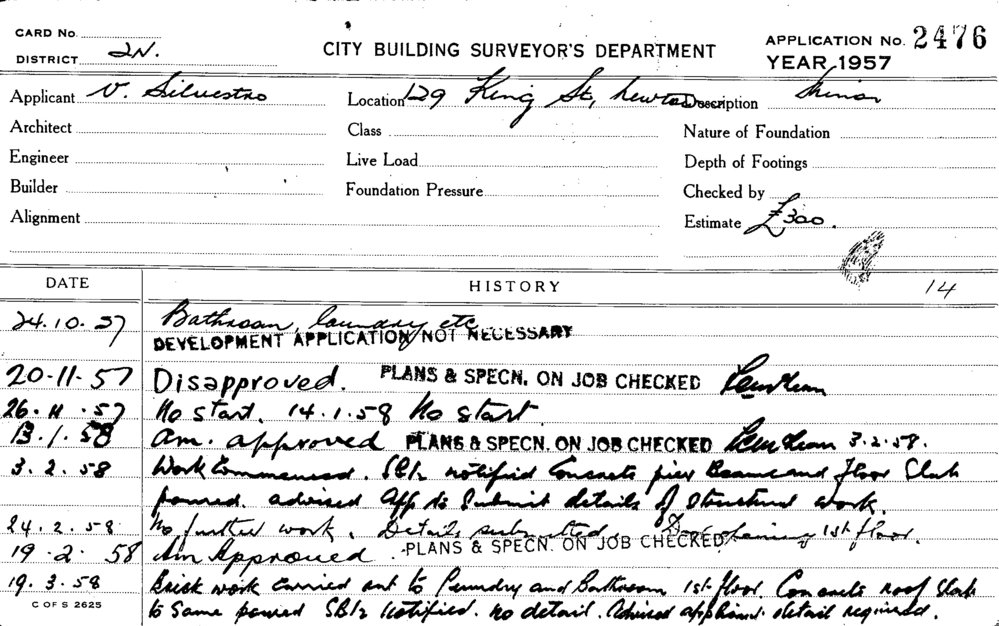 CARD No.
DISTRICT 2N.
CITY BUILDING SURVEYOR'S DEPARTMENT
APPLICATION No. 2476
YEAR 1957
Applicant V. Silvestro
Location 129 King St, Newtown
Description Minor
Architect
Class
Nature of Foundation
Engineer
Live Load
Depth of Footings
Builder
Foundation Pressure
Checked by
Alignment
Estimate £300.
14
DATE HISTORY
24.10.57 Bathroom, laundry etc
DEVELOPMENT APPLICATION NOT NECESSARY
20-11-57 Disapproved. PLANS & SPECN. ON JOB CHECKED
26.11.57 No start. 14.1.58 No start
13.1.58 Am. approved PLANS & SPECN. ON JOB CHECKED 3.2.58.
3.2.58 Work Commenced. notified Concrete pier Beams and Floor Slab
poured. advised App to Submit details of Structural work.
24.2.58 No further work. Details submitted 1st floor.
19.2.58 Am Approved PLANS & SPECN. ON JOB CHECKED
19.3.58 Brick work carried out to Laundry and Bathroom 1st floor. Concrete roof Slab
C OF S 2625
to Same poured notified. no detail. Advised applicant detail required.